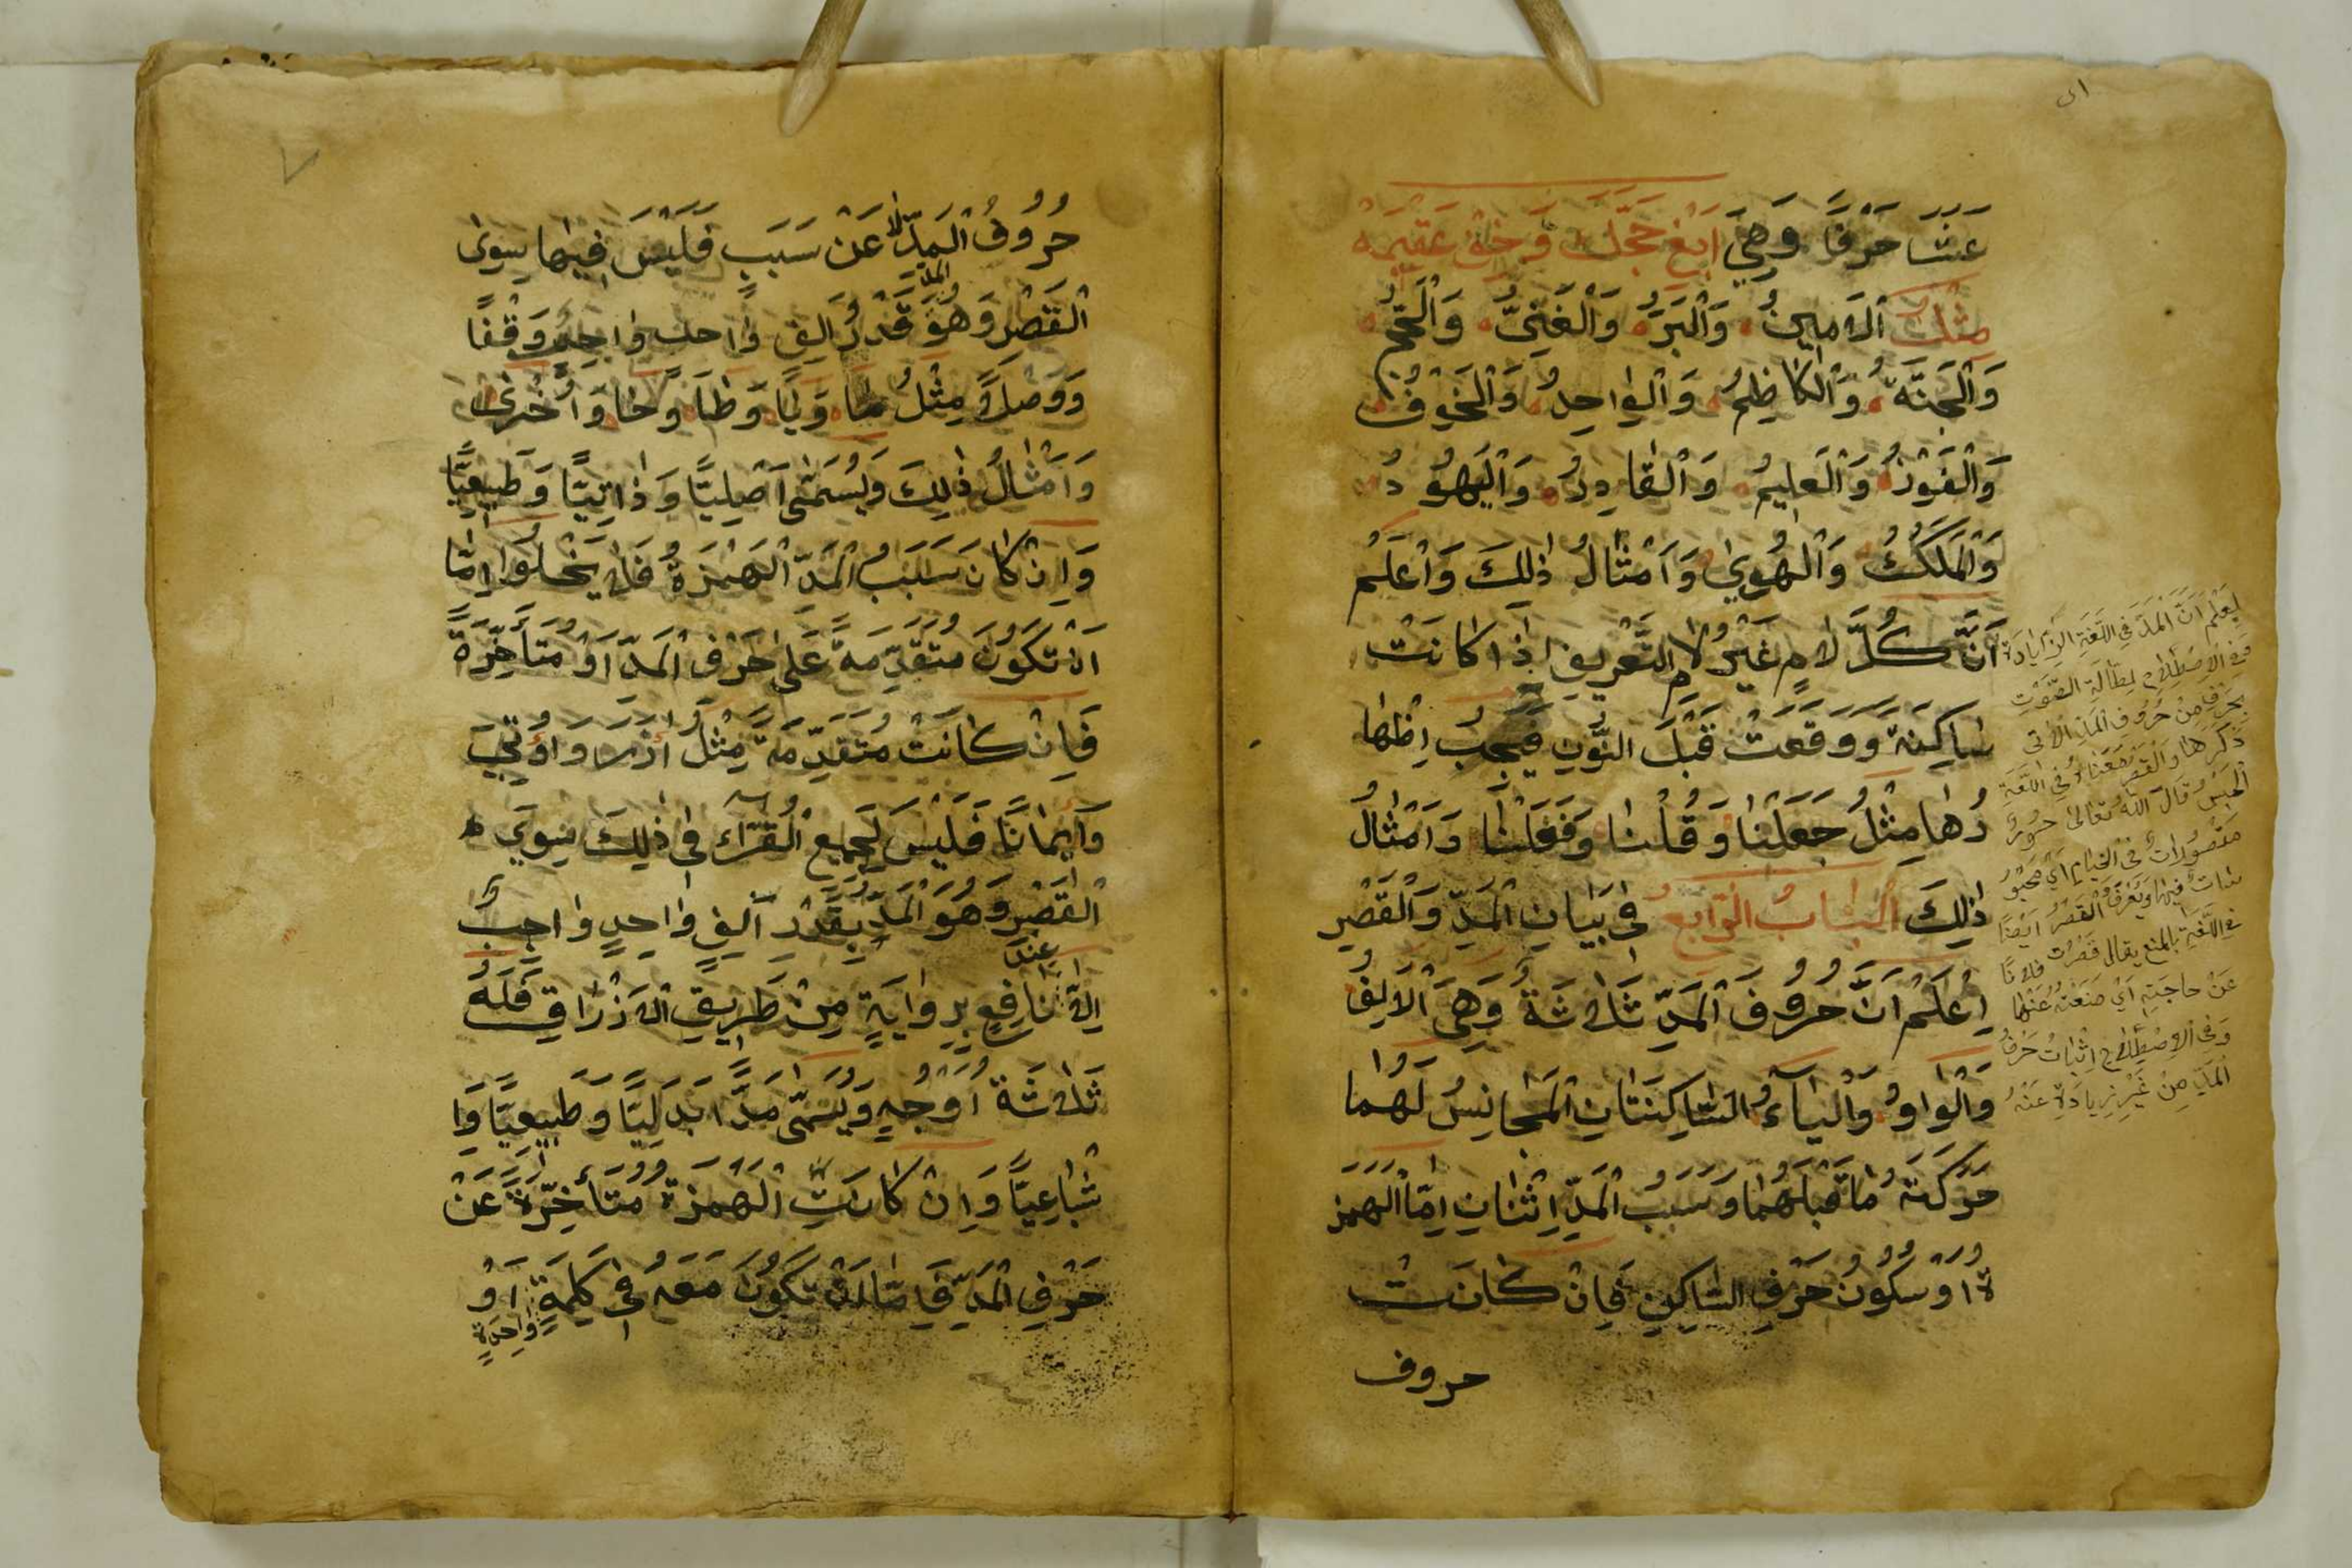 عَشَرَ حَرْفًا وَهِيَ اَبْغِ حَجَّكَ وَخَفْ عَقِيمَهُ
مِثْلُ اَلْاَمِينُ وَالْبَرُّ وَالْغَنِيُّ وَالْحَجُّ
وَالْجَنَّةُ وَالْكَاظِمُ وَالْوٰاحِدُ وَالْخَوْفُ
وَالْفَوْزُ وَالْعَلِيمُ وَالْقَادِرُ وَالْيَهُودُ
وَالْمَلَكُ وَالْهُوىٰ وَاَمْثَالُ ذٰلِكَ وَاعْلَمْ
اَنَّ كُلَّ لَامٍ غَيْرُ لَامِ التَّعْرِيفِ اِذَا كَانَتْ
سَاكِنَةً وَوَقَعَتْ قَبْلَ النُّونِ فَيَجِبُ اِظْهَا
رُهٰا مِثْلُ جَعَلْنٰا وَقُلْنٰا وَفَعَلْنٰا وَاَمْثٰالُ
ذٰلِكَ اَلْبٰابُ الرّٰابِعُ فِي بَيٰانِ الْمَدِّ وَالْقَصْرِ
اِعْلَمْ اَنَّ حُرُوفَ الْمَدِّ ثَلَاثَةٌ وَهِيَ الْاَلِفُ
وَالْوٰاوُ وَالْيٰآءُ السّٰاكِنَتٰانِ الْمُجٰانِسُ لَهُمٰا
حَرَكَةُ مٰا قَبْلَهُمٰا وَسَبَبُ الْمَدِّ اِثْنٰانِ اِمَّا الْهَمْزَ
ةُ اَوْ سُكُونُ حَرْفِ السّٰاكِنِ فَاِنْ كٰانَتْ
حروف
لِيُعْلَمْ اَنَّ الْمَدَّ فِي اللُّغَةِ الزِّيَادَةُ
وَفِي الْاِصْطِلَاحِ اِطَالَةُ الصَّوْتِ
بِحَرْفٍ مِنْ حُرُوفِ الْمَدِّ الْاٰتِي
ذِكْرُهٰا وَالْقَصْرُ مَعْنٰاهُ فِي اللُّغَةِ
الْحَبْسُ قَالَ اللّٰهُ تَعَالٰى حُورٌ
مَقْصُورَاتٌ فِي الْخِيَامِ اَيْ مَحْبُوْ
سٰاتٌ فِيهَا وَيُعْرَفُ الْقَصْرُ اَيْضًا
فِي اللُّغَةِ بِالْمَنْعِ يُقَالُ قَصَرْتُ فُلَانًا
عَنْ حَاجَتِهِ اَيْ مَنَعْتُهُ عَنْهٰا
وَفِي الْاِصْطِلَاحِ اِثْبٰاتُ حَرْفُ
الْمَدِّ مِنْ غَيْرِ زِيَادَةٍ عَنْهُ
حُرُوفُ الْمَدِّ لَا عَنْ سَبَبٍ فَلَيْسَ فِيهٰا سِوٰى
الْقَصْرِ وَهُوَ المد قَدْرُ اَلِفٍ وٰاحِدٍ وٰاجِبٌ وَقْفًا
وَوَصْلًا مِثْلُ مٰا وَيٰا وَطٰا وَحٰا وَاُخْرٰى
وَاَمْثٰالُ ذٰلِكَ وَيُسَمّٰى اَصْلِيًّا وَذٰاتِيًّا وَطَبِيعِيًّا
وَاِنْ كٰانَ سَبَبُ الْمَدِّ الْهَمْزَةُ فَلَا يَخْلُوا اِمّٰا
اَنْ تَكُونَ مُتَقَدِّمَةً عَلٰى حَرْفِ الْمَدِّ اَوْ مُتَأَخِّرَةً
فَاِنْ كٰانَتْ مُتَقَدِّمَةً مِثْلُ اٰزَرَ وَاُوتِيَ
وَاِيمٰانًا فَلَيْسَ لِجَمِيعِ الْقُرّٰاءِ فِي ذٰلِكَ سِوَى
الْقَصْرِ وَهُوَ الْمَدُّ بِقَدْرِ اَلِفٍ وٰاحِدٍ وٰاجِبٌ
اِلَّا عِنْدَ نٰافِعٍ بِرِوٰايَةٍ مِنْ طَرِيقِ الْاَزْرَاقِ فَلَهُ
ثَلَاثَةُ اَوْجُهٍ وَيُسَمّٰى مَدًّا بَدَلِيًّا وَطَبِيعِيًّا وَاِ
شْبٰاعِيًّا وَاِنْ كٰانَتِ الْهَمْزَةُ مُتَأَخِّرَةً عَنْ
حَرْفِ الْمَدِّ فَاِمّٰا اَنْ تَكُونَ مَعَهُ فِي كَلِمَةٍ وٰاحِدَةٍ اَوْ